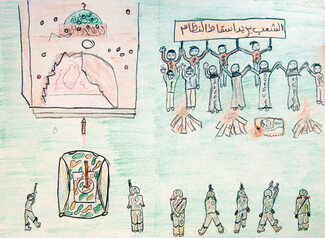 الشعب يريد اسقاط النظام